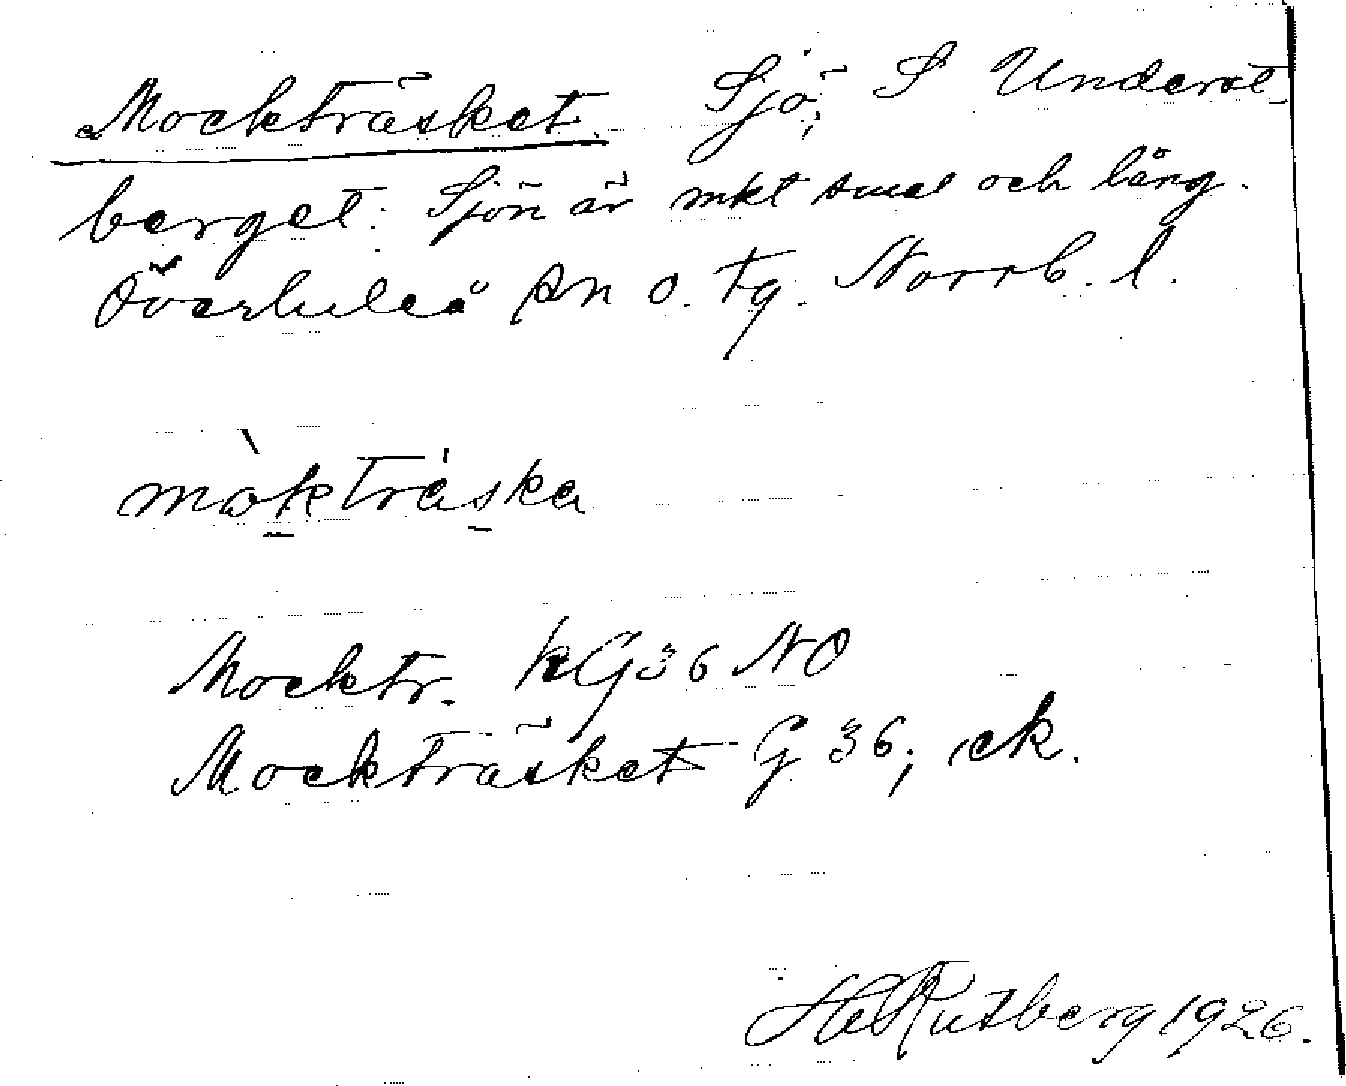 Mockträsket. Sjö, S Underst-
berget. Sjön är mkt smal och lång.
Överluleå sn o. tg. Norrb. l.
mòkträska
Mocktr. kG36 NO
Mockträsket G 36, ek.
Hd Rutberg 1926.